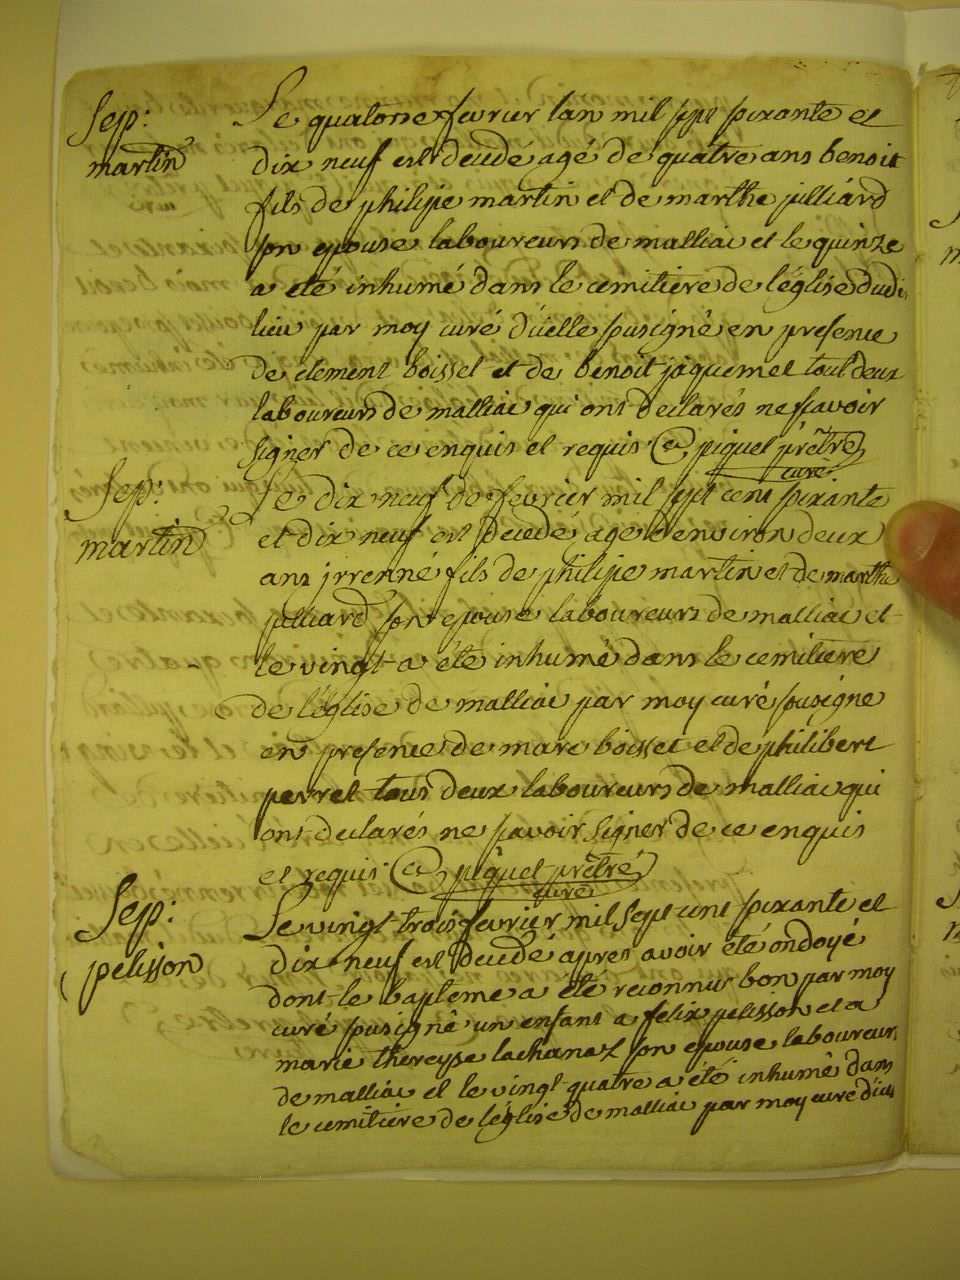 Sep:
martin
Le quatorze fevrier lan mil sept soixante et
dix neuf est decedé agé de quatre ans benoit
fils de philipe martin et de marthe julliard
son epouse laboureurs de malliac et le quinze
a été inhumé dans le cemitiere de léglise dudi
lieu par moy curé d'icelle sousigné en presence
de clement boisset et de benoit jaquemet tout deux
laboureurs de malliac qui ont declarés ne scavoir
signer de ce enquis et requis piquet prêtre
curé
Sep:
martin
Le dix neuf de fevrier mil sept cent soixante
et dix neuf est decedé agé denviron deux
ans jrrenné fils de philipe martin et de marthe
julliard son epouse laboureurs de malliac et
le vingt a été inhumé dans le cemitiere
de léglise de malliac par moy curé sousigne
en presence de marc boisset et de philibert
perret tous deux laboureurs de malliac qui
ont declarés ne savoir signer de ce enquis
et requis piquet prêtré
curé
Sep:
pelisson
Le vingt trois fevrier mil sept cent soixante et
dix neuf est decedé apres avoir été ondoyé
dont le bapteme a été reconnus bon par moy
curé sousigné un enfant a felix pelisson et a
marie thereyse lachanaz son epouse laboureur
de malliac et le vingt quatre a été inhumé dans
le cemitiere de léglise de malliac par moy curé d'icel